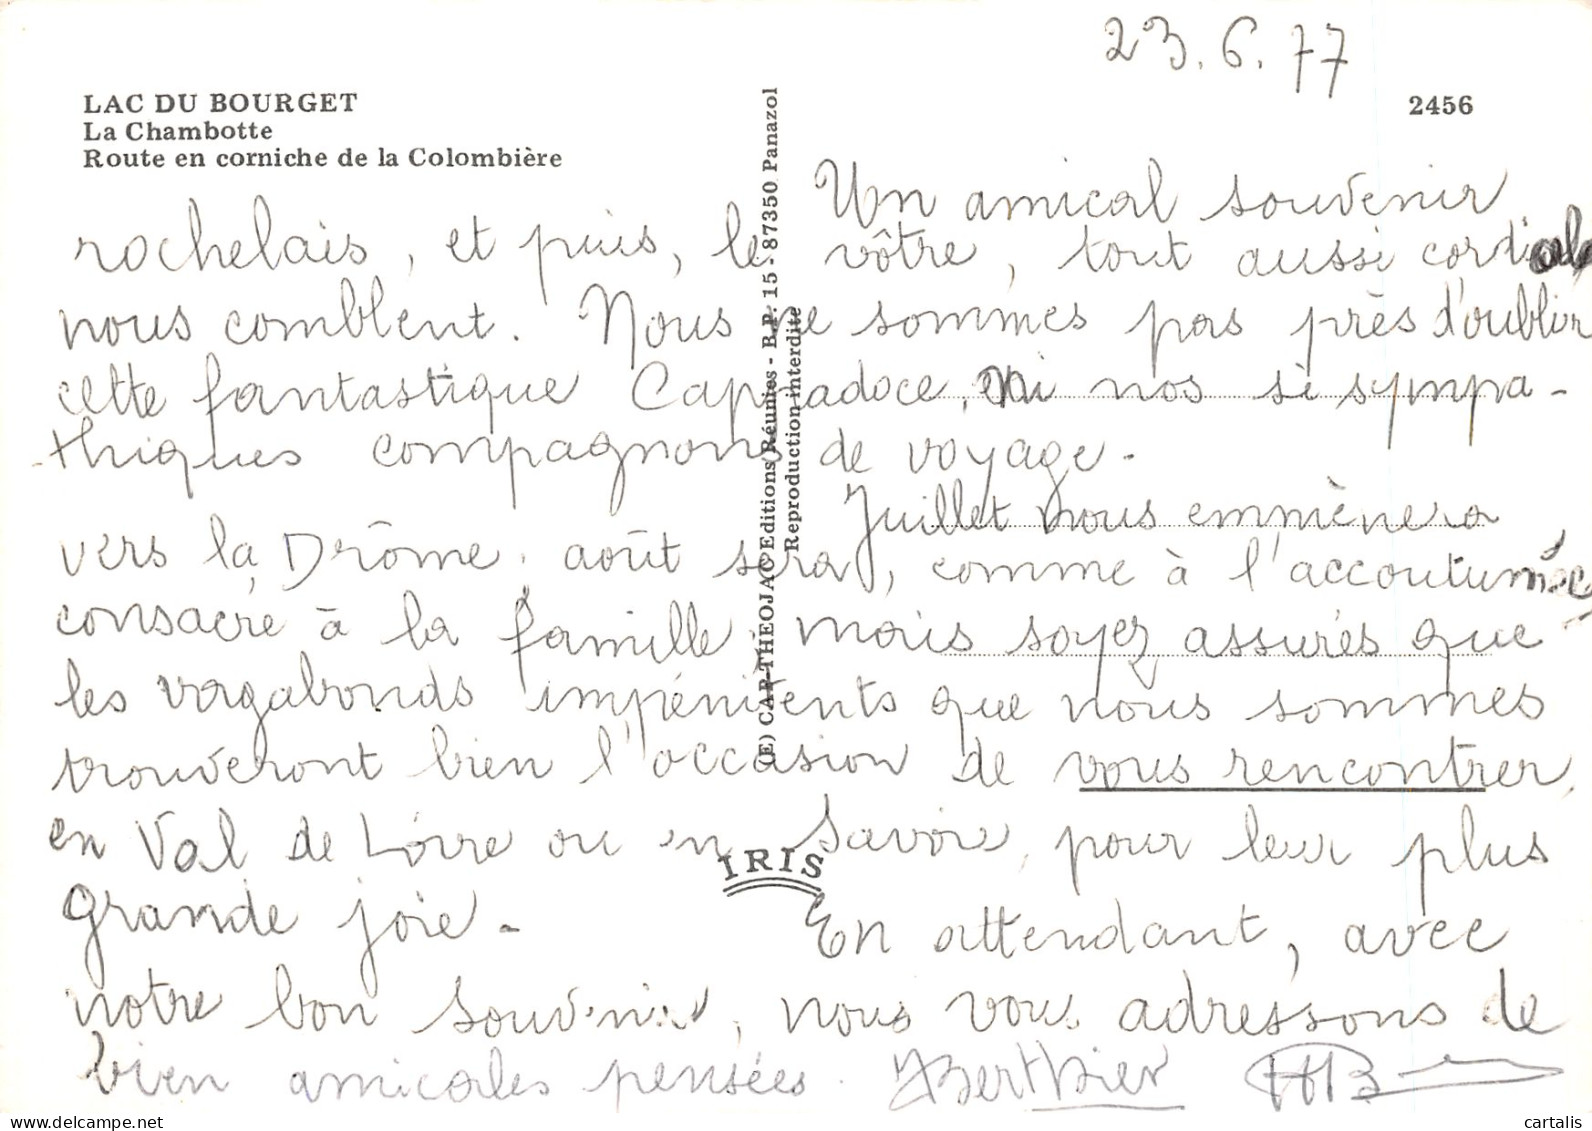 23.6.77
LAC DU BOURGET
La Chambotte
Route en corniche de la Colombière
2456
Un amical souvenir
rochelais, et puis, le vôtre, tout aussi cordial
nous comblent. Nous ne sommes pas près d'oublier
cette fantastique Cappadoce, ni nos si sympa-
thiques compagnons de voyage.
Juillet nous emmènera
vers la Drôme, août sera, comme à l'accoutumée
consacré à la famille, mais soyez assurés que
les vagabonds impénitents que nous sommes
trouveront bien l'occasion de vous rencontrer,
en Val de Loire ou en Savoie, pour leur plus
grande joie.
En attendant, avec
notre bon souvenir, nous vous adressons de
bien amicales pensées. Berthier
(E) CAP-THEOJAC Editions Réunies - B.P. 15 - 87350 Panazol
Reproduction interdite
IRIS
cartalis